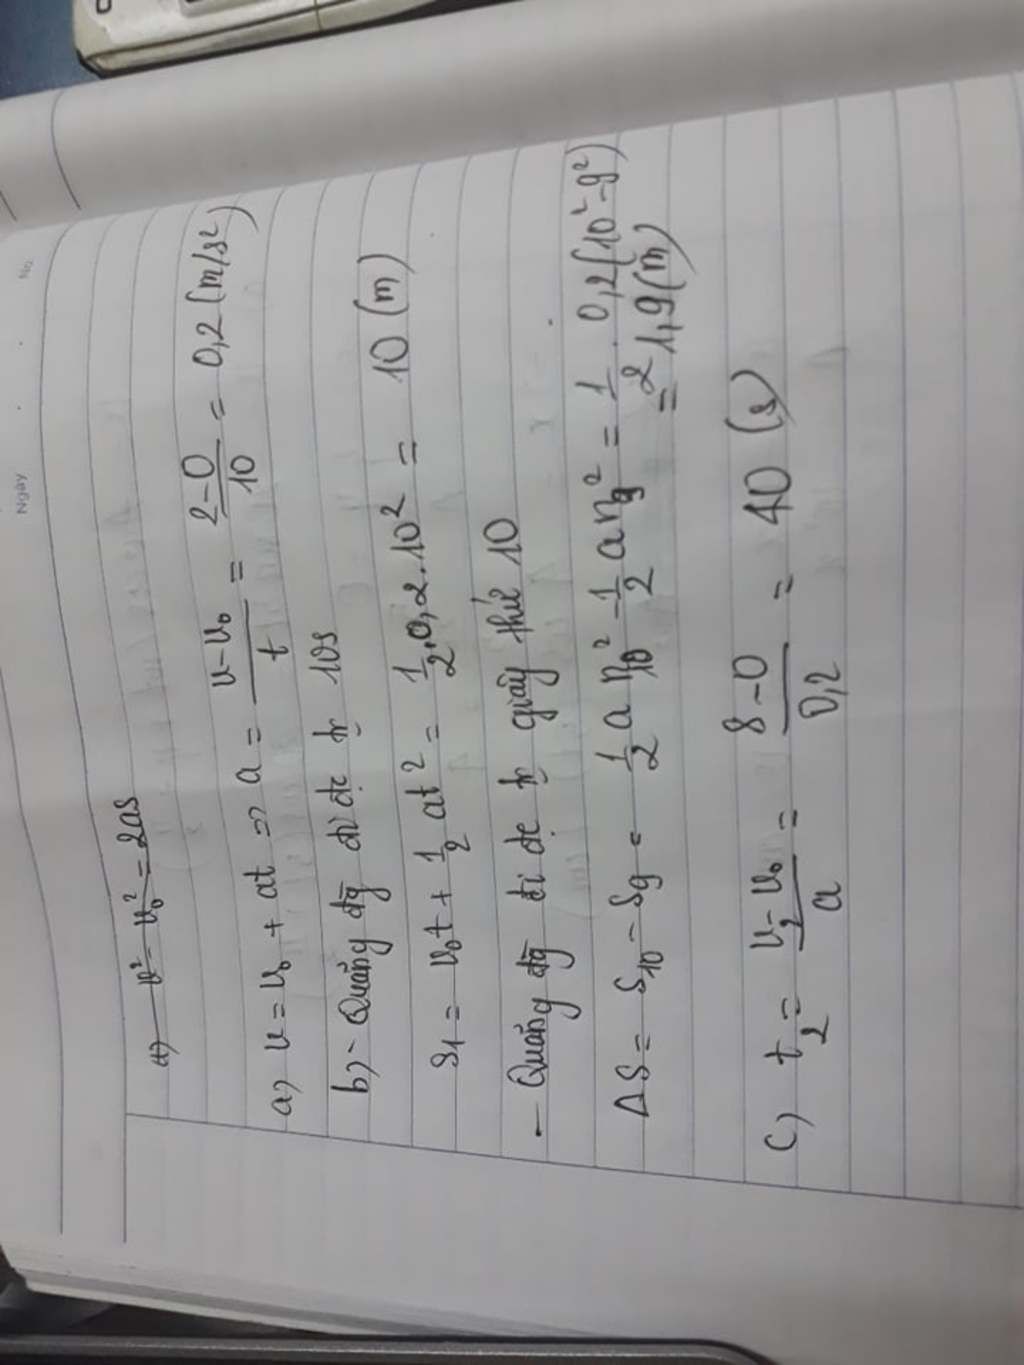 Ngày No.
a) v² - v₀² = 2as
a) v = v₀ + at => a = \frac{v - v₀}{t} = \frac{2 - 0}{10} = 0,2 (m/s²)
b) - Quãng đg đi đc tr 10s
S₁ = v₀t + \frac{1}{2} at² = \frac{1}{2}.0,2.10² = 10 (m)
- Quãng đg đi đc tr giây thứ 10
ΔS = S₁₀ - S₉ = \frac{1}{2} a n₁₀² - \frac{1}{2} a n₉² = \frac{1}{2}.0,2(10² - 9²)
= 1,9 (m)
c) t₂ = \frac{v₂ - v₀}{a} = \frac{8 - 0}{0,2} = 40 (s)